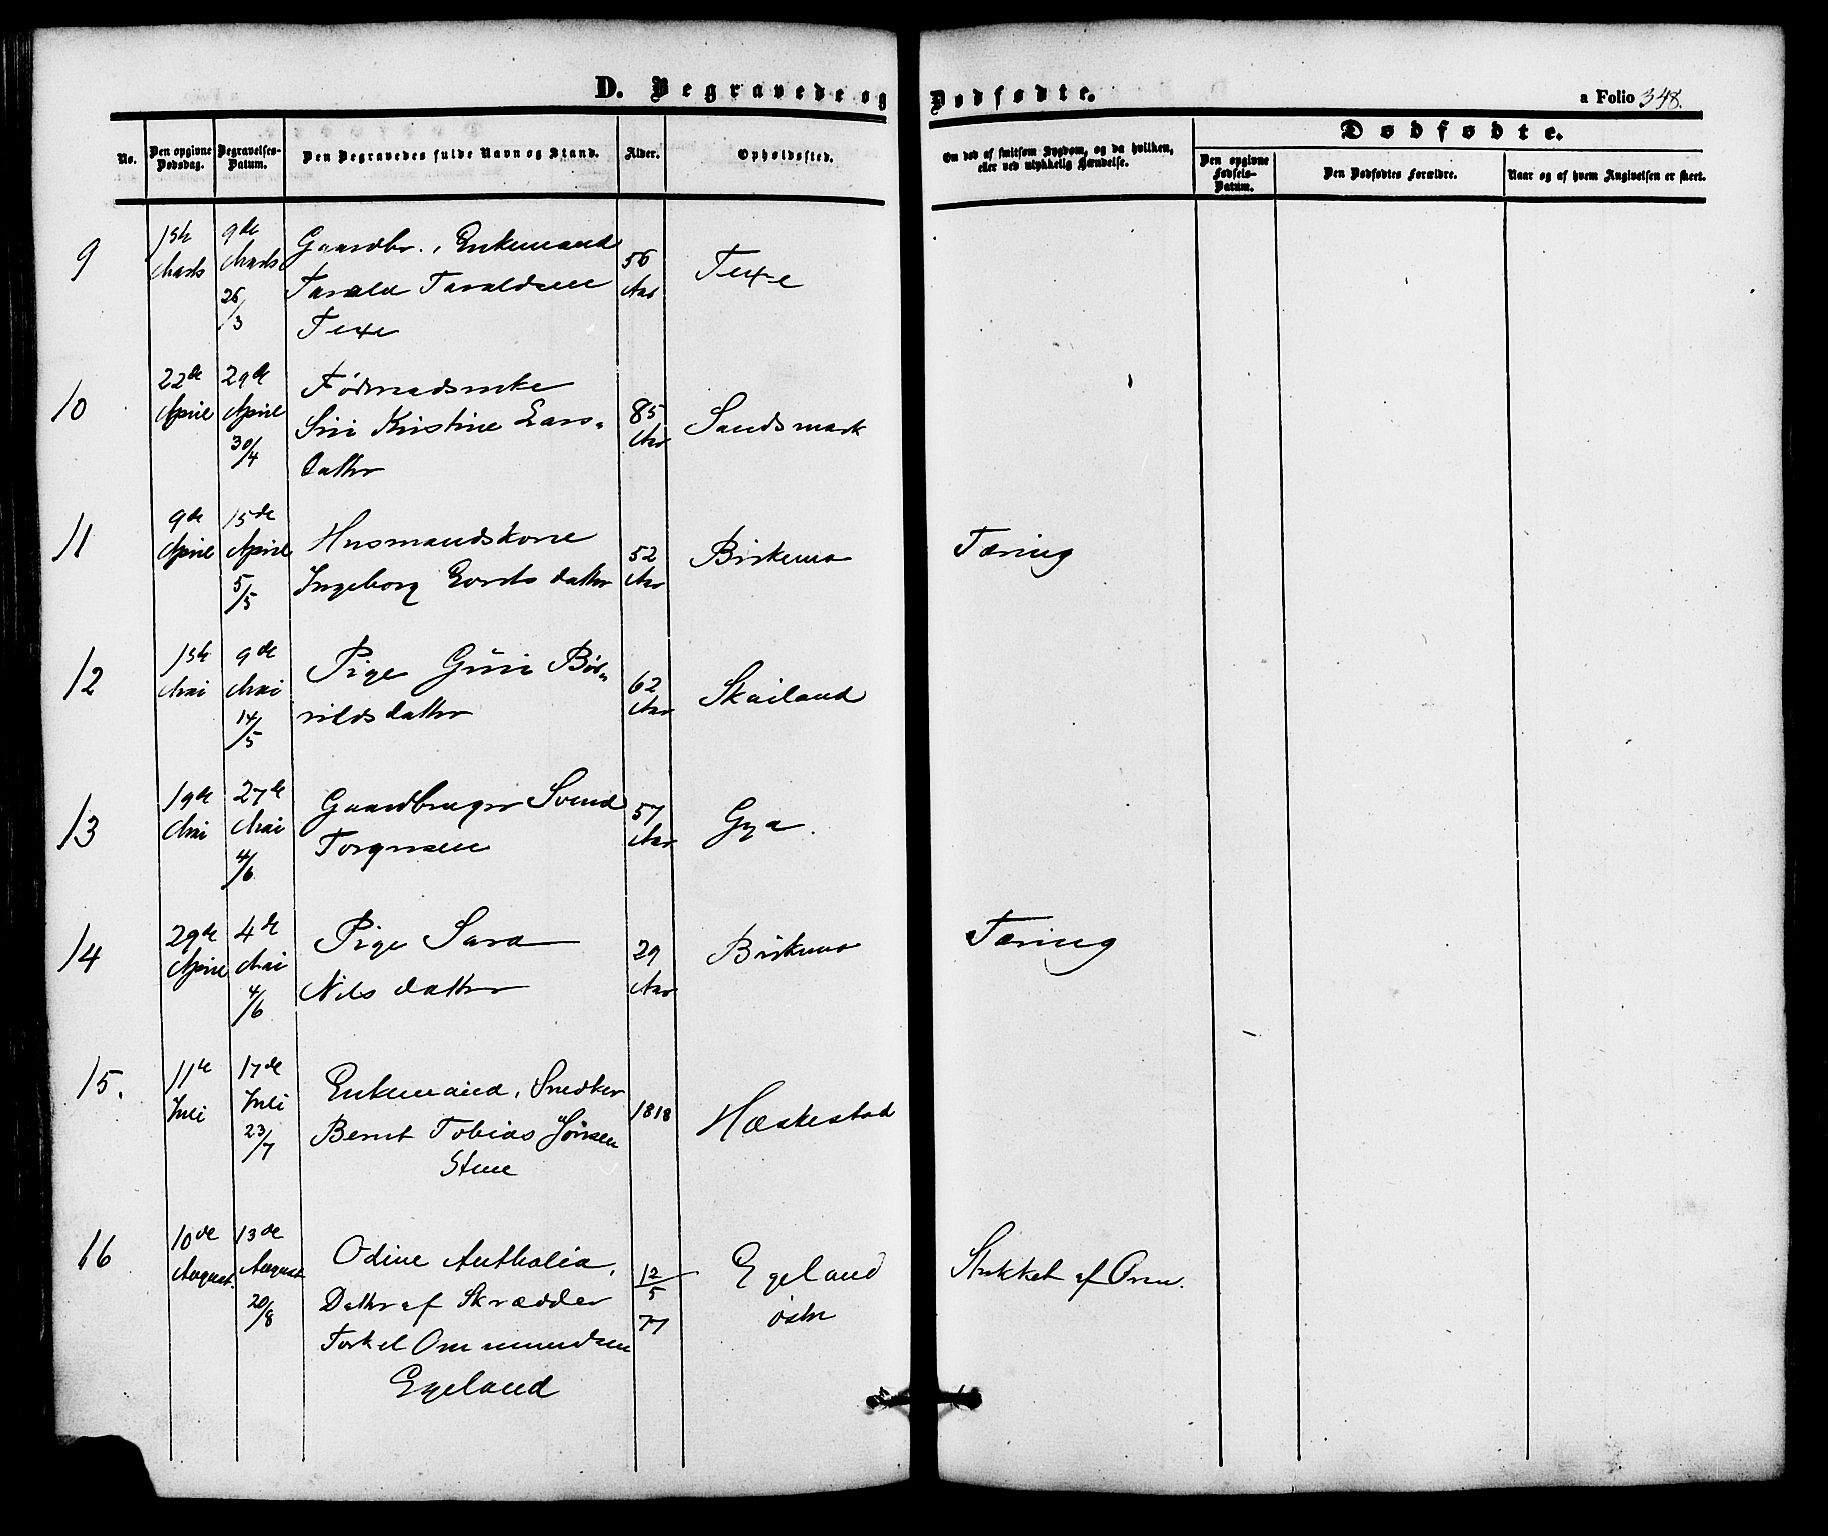 D. Begravede og Dødfødte.
a Folio 348.
No.
Den opgivne Dødsdag.
Begravelses-Datum.
Den Begravedes fulde Navn og Stand.
Alder.
Opholdssted.
Om død af smitsom Sygdom, og da hvilken,
eller ved ulykkelig Hændelse.
Dødfødte.
Den opgivne Fødsels-Datum.
Den Dødfødtes Forældre.
Naar og af hvem Angivelsen er skeet.
9
1ste Marts
9de Marts 26/3
Gaardbr., Enkemand
Tarald Taraldsen
Texe
56 Aar
Texe
10
22de April
29de April 30/4
Siri Kristine Lars-
datter
85 Aar
Sandsmark
11
9de April
15de April 5/5
Husmandskone
Ingeborg datter
52 Aar
Birkemo
Tæring
12
1ste Mai
9de Mai 14/5
Pige Guri Bør-
rildsdatter
62 Aar
Skailand
13
19de Mai
27de Mai 4/6
Gaardbruger Svend
Torgersen
57 Aar
Gya.
14
29de April
4de Mai 4/6
Pige Sara
Nilsdatter
29 Aar
Birkemo
Tæring
15.
11te Juli
17de Juli 23/7
Enkemand, Snedker
Bernt Tobias Jonsen
Stene
1818
Hæskestad
16
10de August.
13de August 20/8
Odine Anthalia,
Datter af Skrædder
Torkel Ommundsen
Egeland
12/5 77
Egeland
østre
Stukket af Orm.